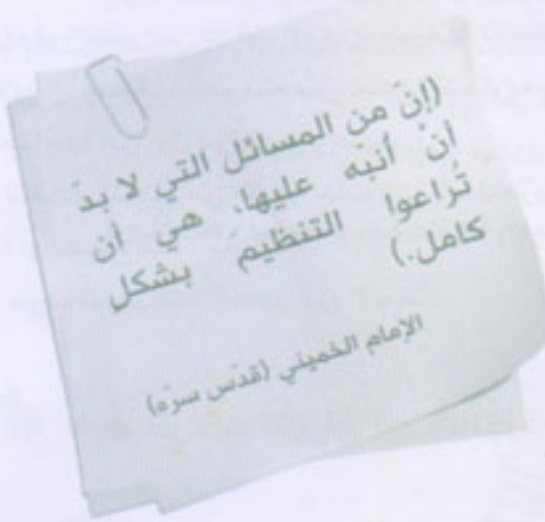 (إنّ من المسائل التي لا بدّ
أنْ أنبّه عليها، هي أن
تُراعوا التنظيمَ بشكلٍ
كامل.)
الإمام الخميني (قدّس سرّه)